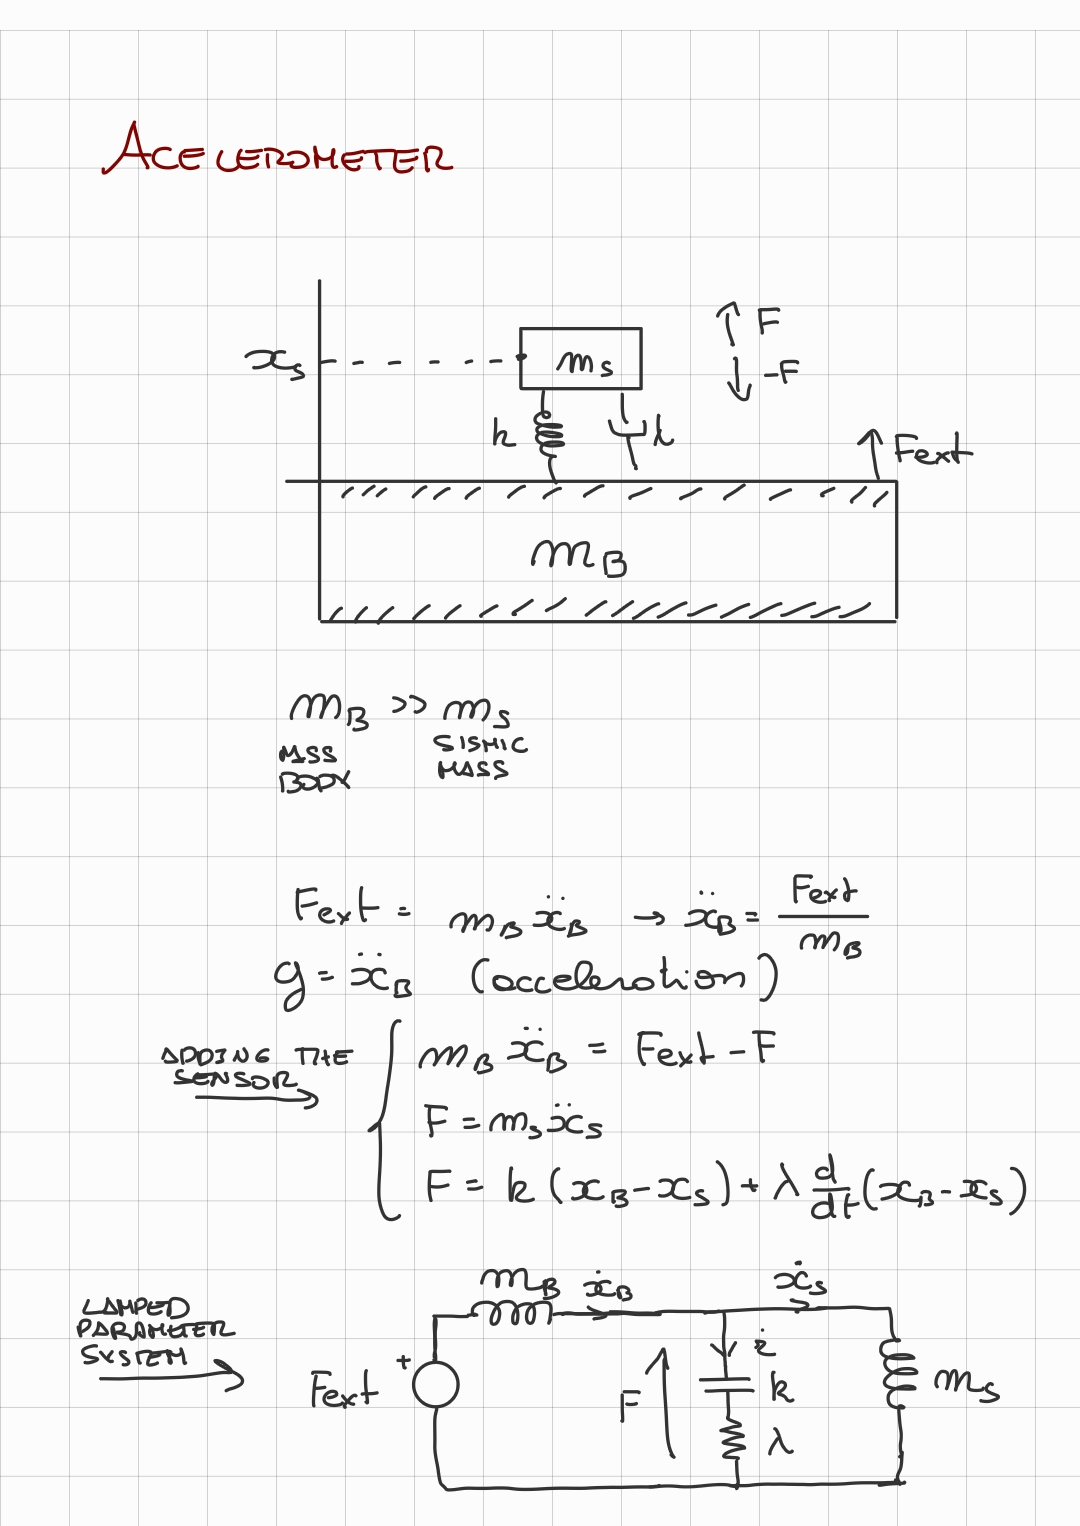 ACELEROMETER
F
xₛ mₛ
-F
k λ
Fext
m_B
m_B >> mₛ
MSS SISMIC
BODY MASS
Fext = m_B ẍ_B → ẍ_B = Fext / m_B
g = ẍ_B (acceleration)
ADDING THE
SENSOR
m_B ẍ_B = Fext - F
F = mₛ ẍₛ
F = k (x_B - xₛ) + λ d/dt (x_B - xₛ)
m_B ẋ_B ẋₛ
LAMPED
PARAMETER
SYSTEM
+
ż
Fext F k mₛ
λ